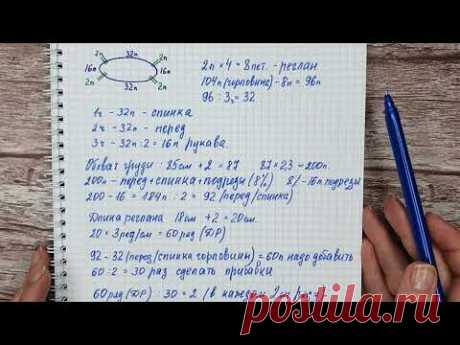 32п
2п 2п
16п 16п
2п 2п
32п
2п × 4 = 8 пет. - реглан
104п (горловина) - 8п = 96п
96 : 3ч = 32
1ч - 32п - спинка
2ч - 32п - перед
3ч - 32п : 2 = 16п рукава.
Обхват груди : 85см + 2 = 87 87 × 2,3 = 200п.
200п - перед + спинка + подрезы (8%) 8% - 16п подрезы
200 - 16 = 184п : 2 = 92 (перед/спинка)
Длина реглана 18см + 2 = 20см.
20 × 3ряд/см = 60ряд (ДР)
92 - 32 (перед/спинка горловины) = 60п надо добавить
60 : 2 = 30 раз сделать прибавки
60ряд (ДР) : 30 = 2 (в каждом 2ом
postila.ru